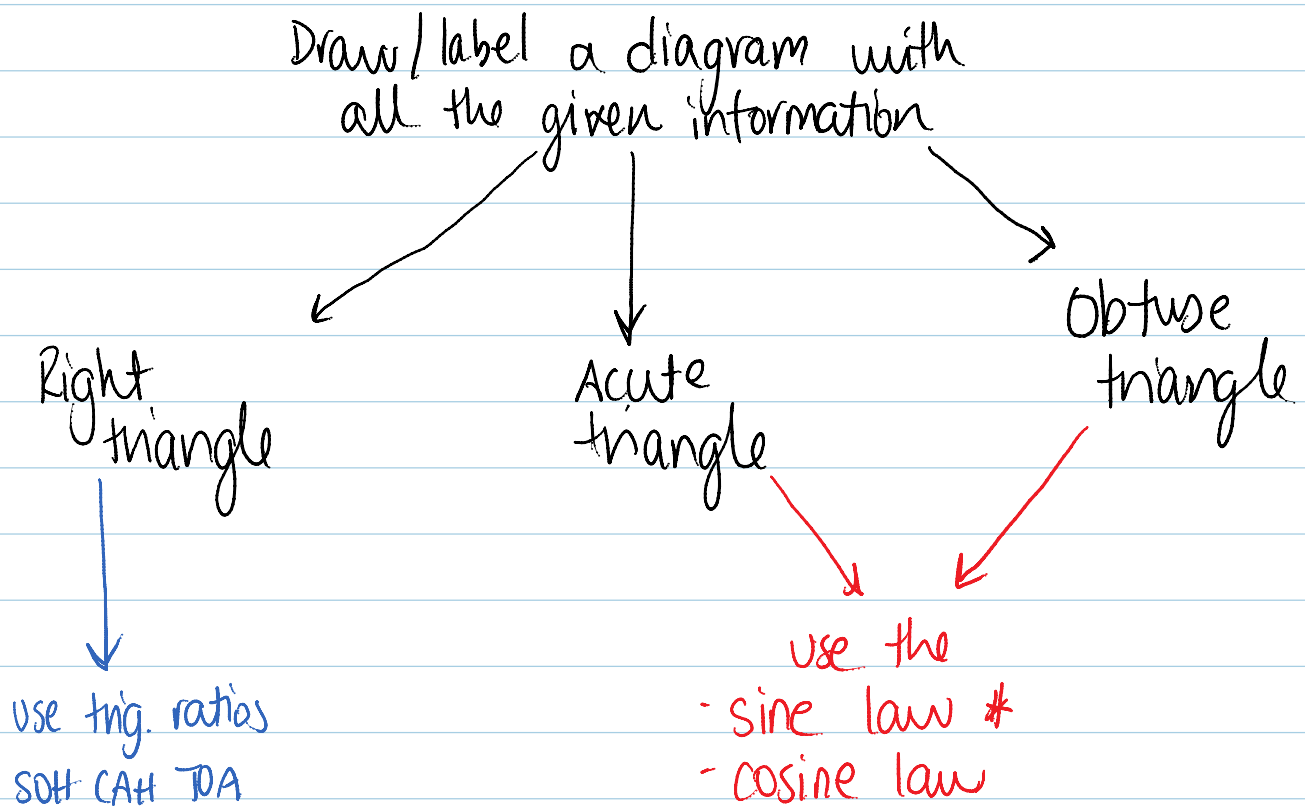 Draw/label a diagram with
all the given information
Right
triangle
Acute
triangle
Obtuse
triangle
use trig. ratios
SOH CAH TOA
use the
- sine law *
- cosine law